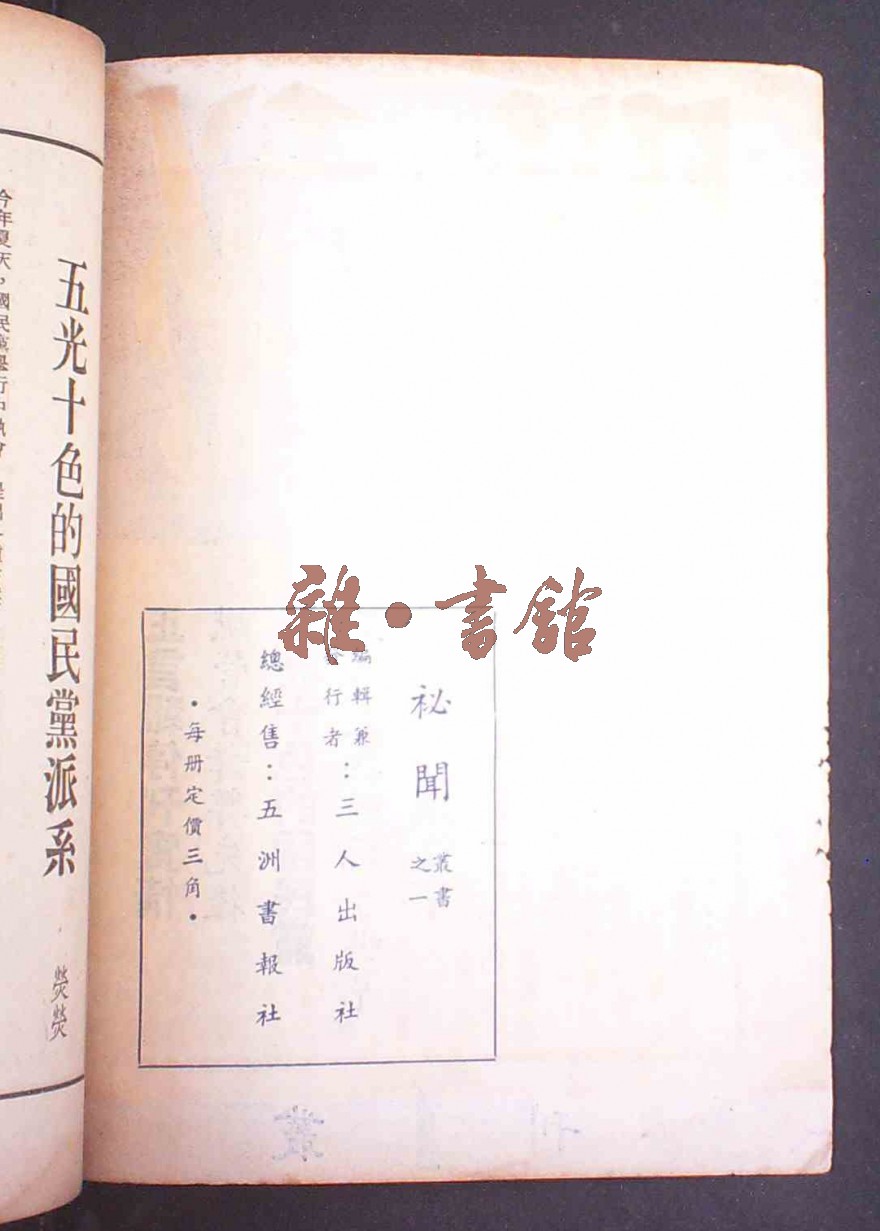 雜•書館
祕聞 叢書之一
編輯兼
行者：三人出版社
總經售：五洲書報社
•每册定價三角•
五光十色的國民黨派系
熒熒
今年夏天，國民黨舉行中執會
叢
刊